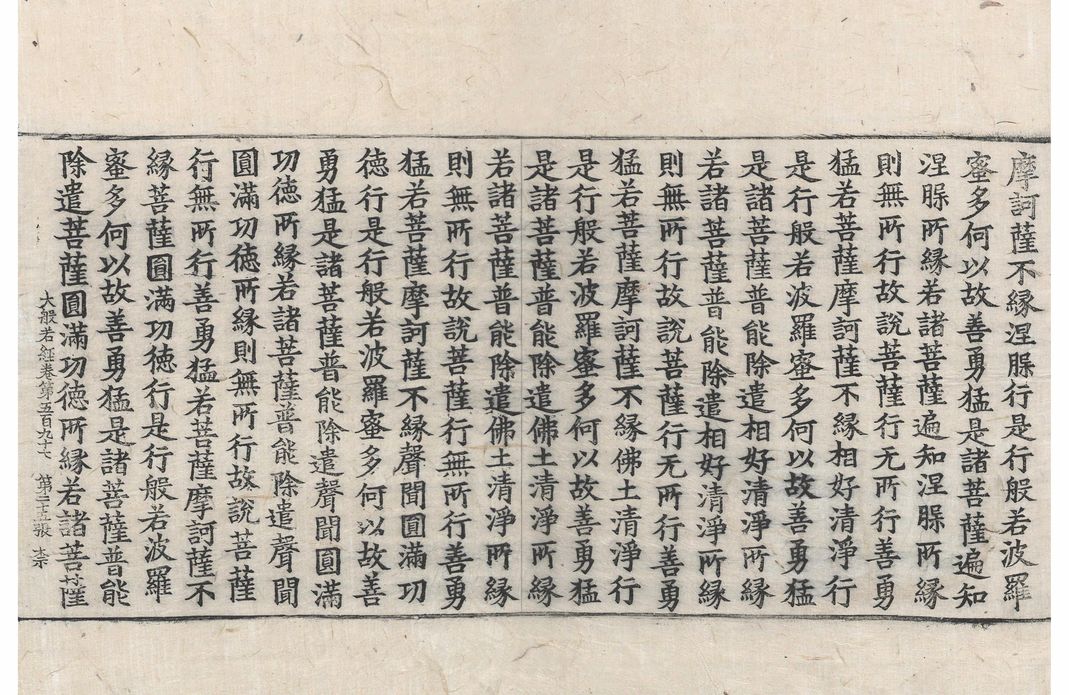 摩訶薩不縁涅槃行是行般若波羅
蜜多何以故善勇猛是諸菩薩遍知
涅槃所縁若諸菩薩遍知涅槃所縁
則無所行故說菩薩行无所行善勇
猛若菩薩摩訶薩不縁相好清淨行
是行般若波羅蜜多何以故善勇猛
是諸菩薩普能除遣相好清淨所縁
若諸菩薩普能除遣相好清淨所縁
則無所行故說菩薩行无所行善勇
猛若菩薩摩訶薩不縁佛土清淨行
是行般若波羅蜜多何以故善勇猛
是諸菩薩普能除遣佛土清淨所縁
若諸菩薩普能除遣佛土清淨所縁
則無所行故說菩薩行無所行善勇
猛若菩薩摩訶薩不縁聲聞圓滿功
德行是行般若波羅蜜多何以故善
勇猛是諸菩薩普能除遣聲聞圓滿
功德所縁若諸菩薩普能除遣聲聞
圓滿功德所縁則無所行故說菩薩
行無所行善勇猛若菩薩摩訶薩不
縁菩薩圓滿功德行是行般若波羅
蜜多何以故善勇猛是諸菩薩普能
除遣菩薩圓滿功德所縁若諸菩薩
大般若經卷第五百九十七 第二十五張 柰